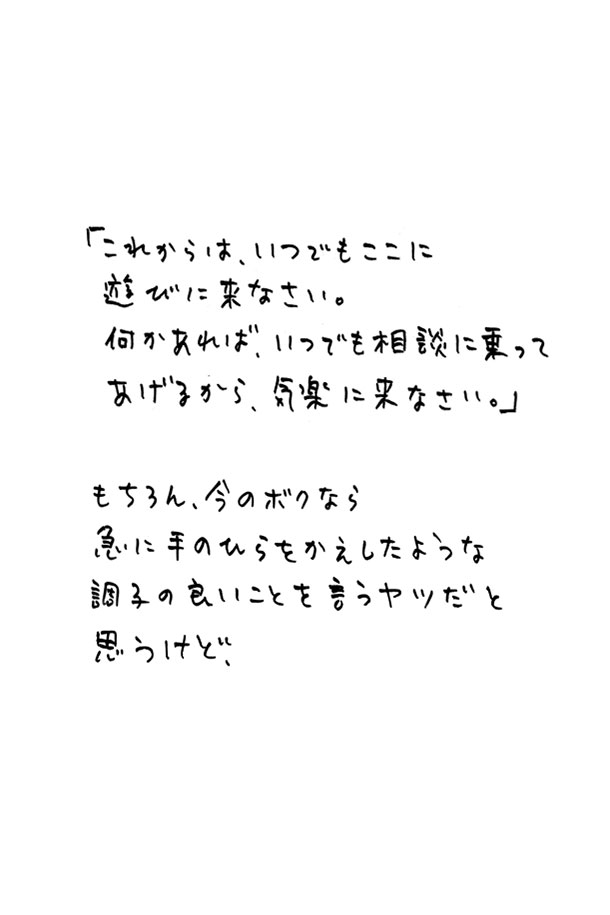 「これからは、いつでもここに
遊びに来なさい。
何かあれば、いつでも相談に乗って
あげるから、気楽に来なさい。」
もちろん、今のボクなら
急に手のひらをかえしたような
調子の良いことを言うヤツだと
思うけど、